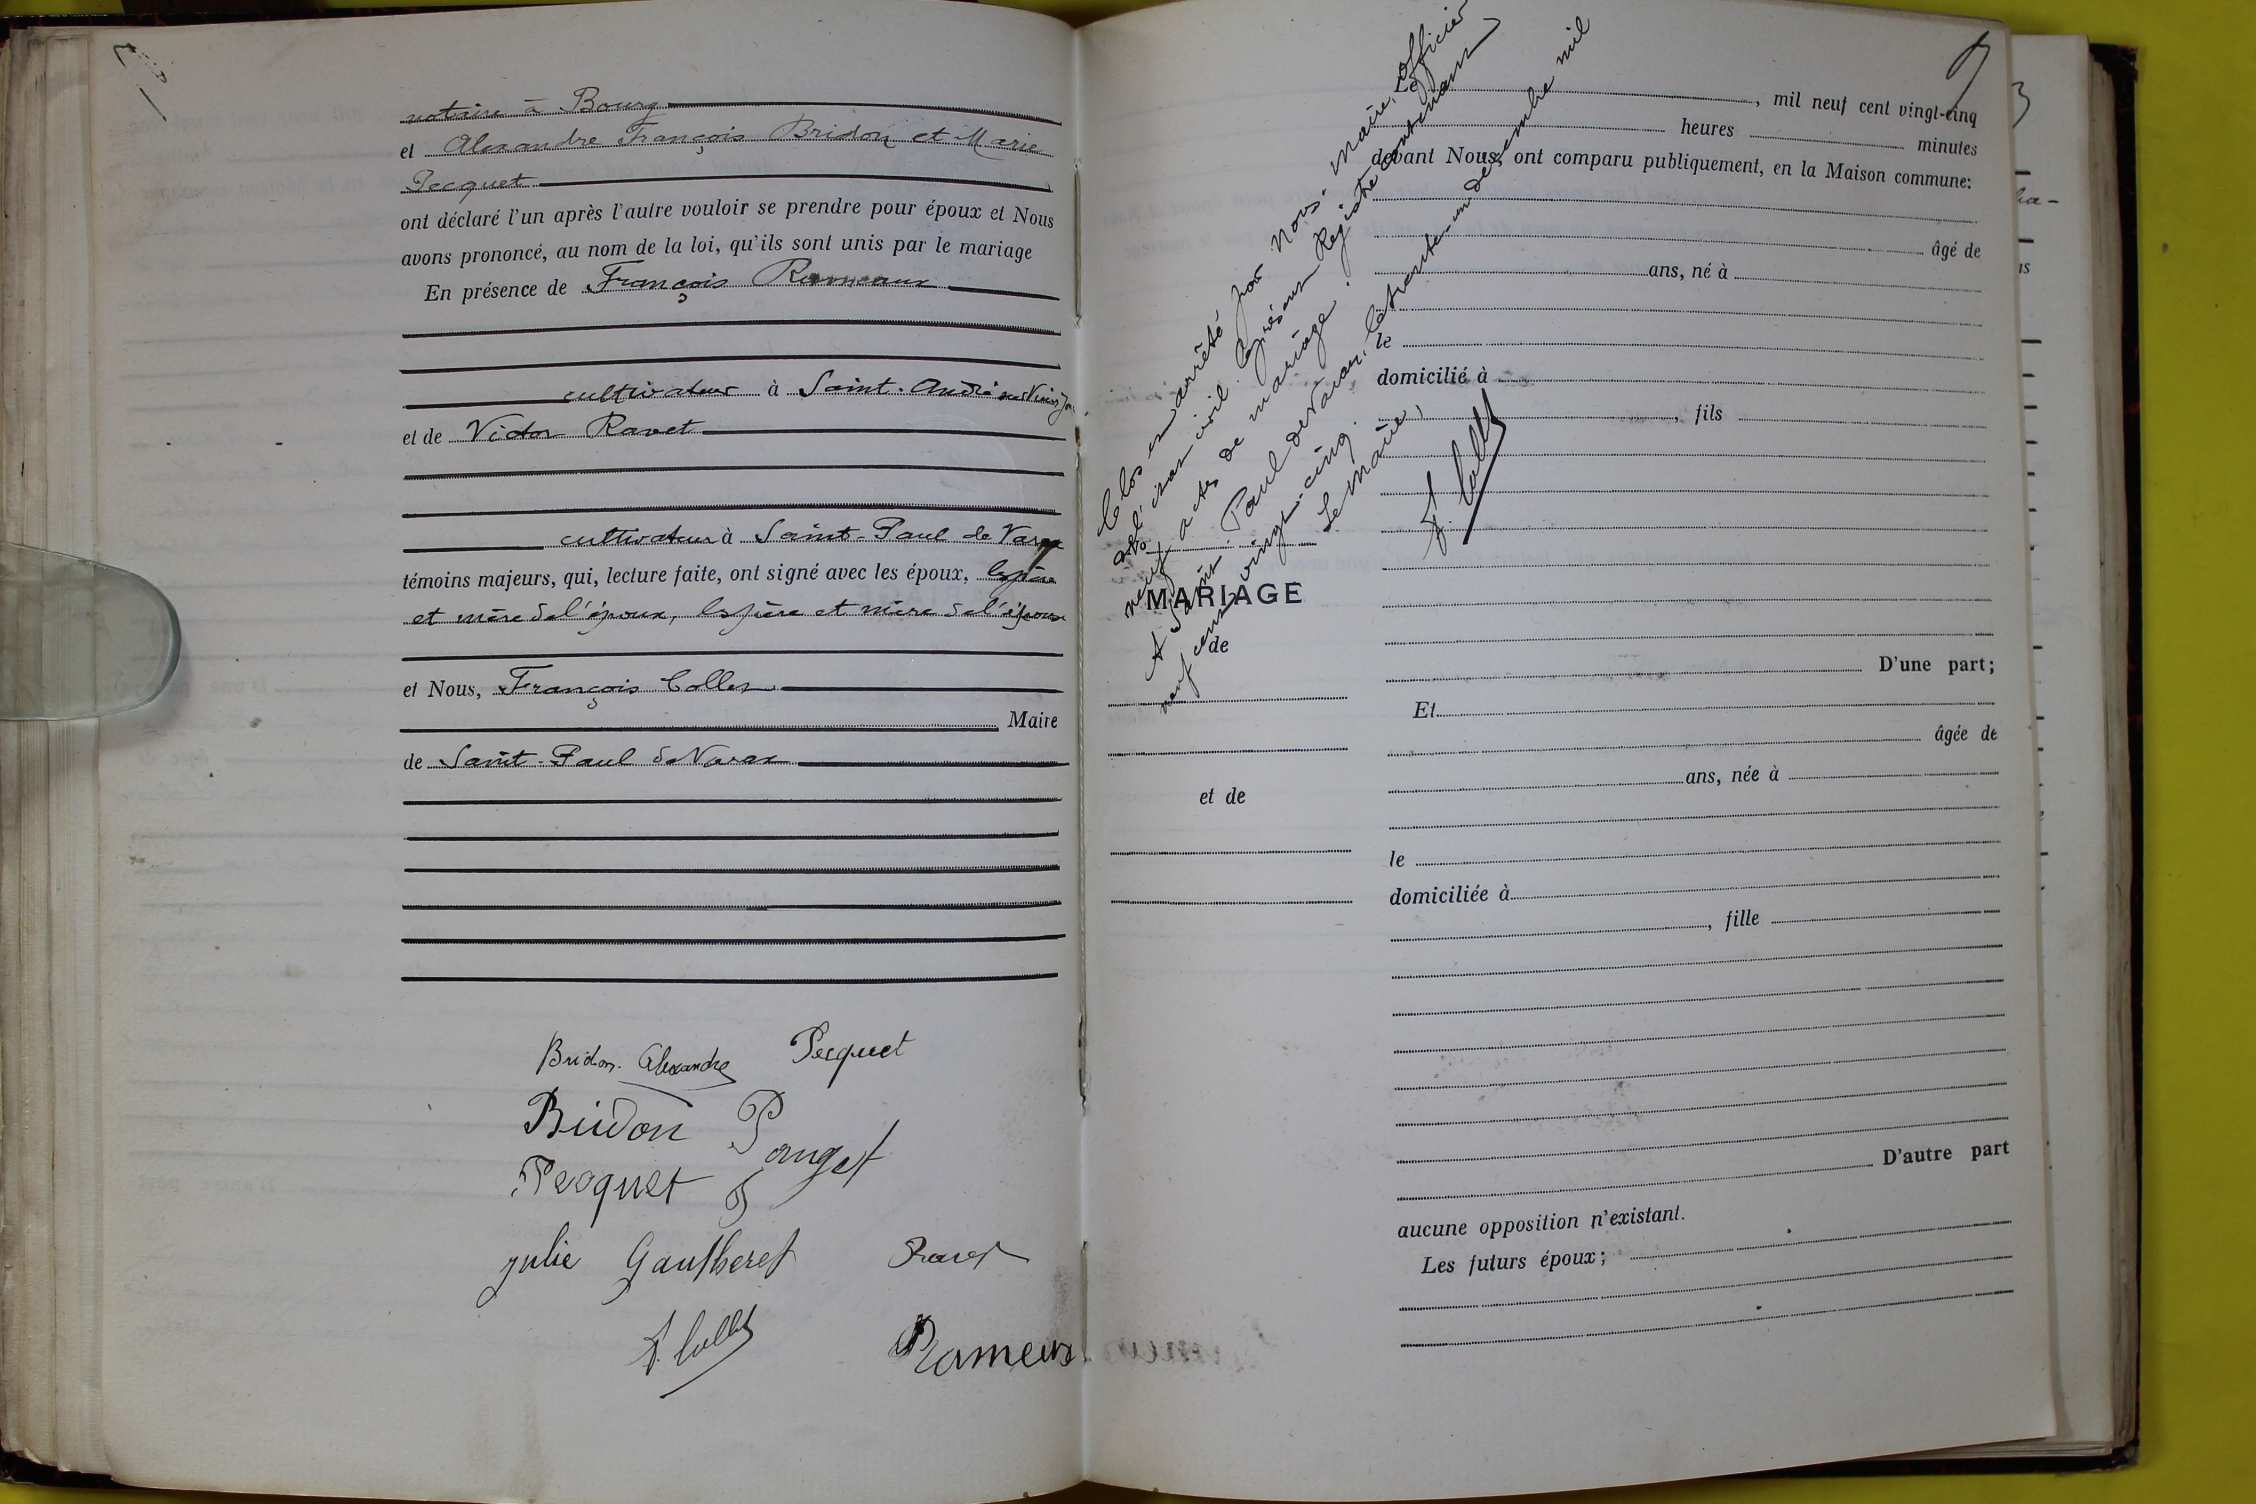 notaire à Bourg
et Alexandre François Bridon et Marie
Pecquet
ont déclaré l'un après l'autre vouloir se prendre pour époux et Nous
avons prononcé, au nom de la loi, qu'ils sont unis par le mariage
En présence de François Rameaux
cultivateur à Saint-André
et de Victor Ravet
cultivateur à Saint-Paul de Varax
témoins majeurs, qui, lecture faite, ont signé avec les époux, les père
et mère de l'époux, les père et mère de l'épouse
et Nous, François Collet
Maire
de Saint-Paul de Varax
Bridon Alexandre Pecquet
Bridon Ponget
Pecquet
Julie Gautheret Ravet
F. Collet
Rameux
9
Clos et arrêté par Nous, Maire, officier
de l'état civil le présent Registre contenant
neuf actes de mariage.
A Saint Paul de Varax, le trente-un décembre mil
neuf cent vingt-cinq.
Le Maire,
F. Collet
MARIAGE
de
et de
Le , mil neuf cent vingt-cinq
heures minutes
devant Nous, ont comparu publiquement, en la Maison commune:
âgé de
ans, né à
le
domicilié à
, fils
D'une part;
Et
âgée de
ans, née à
le
domiciliée à
, fille
D'autre part
aucune opposition n'existant.
Les futurs époux;
3